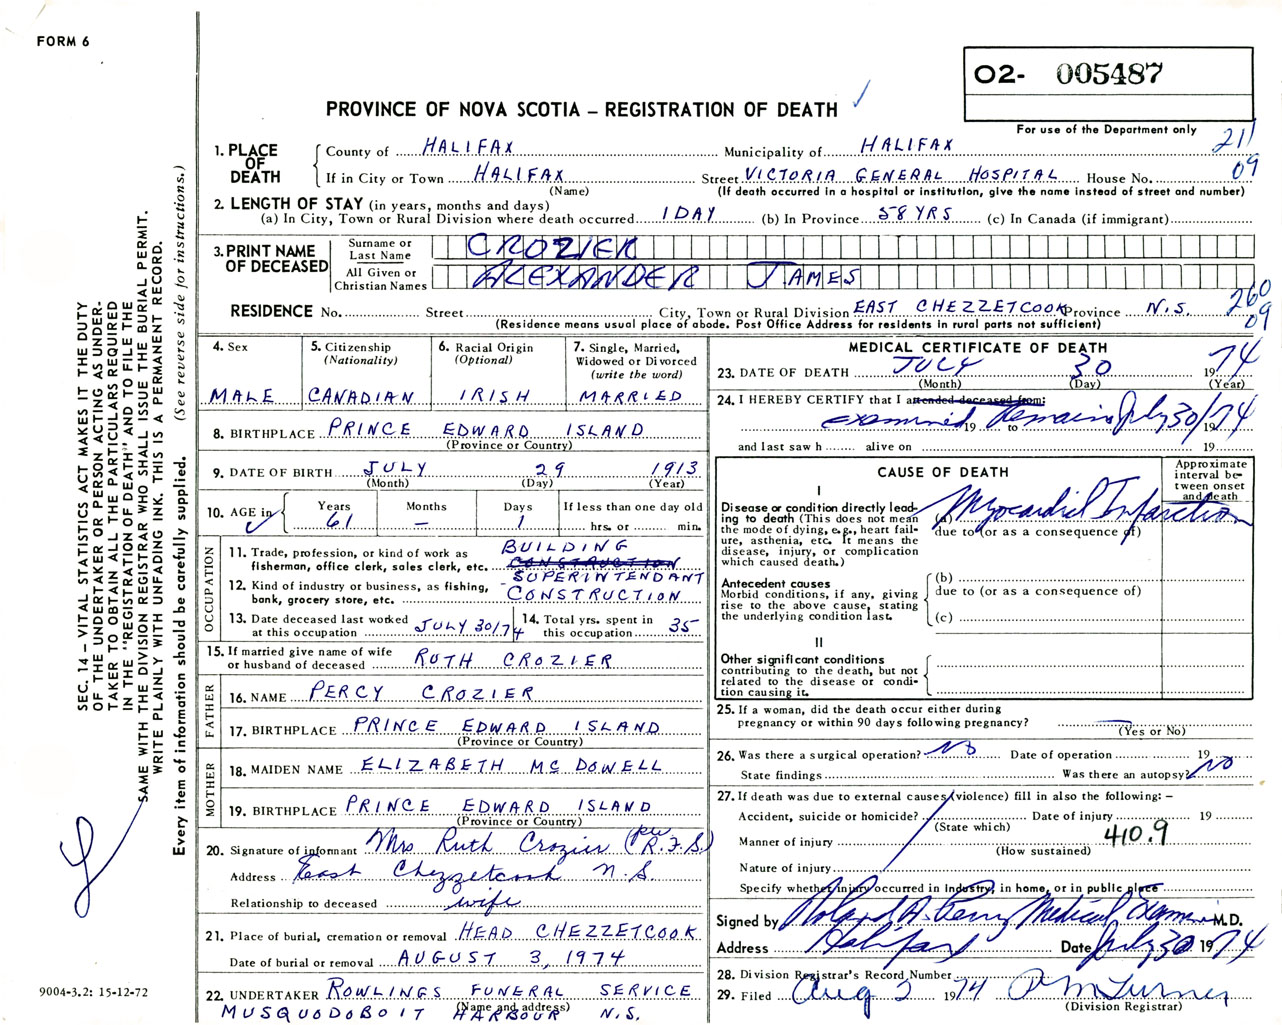 FORM 6
O2- 005487
PROVINCE OF NOVA SCOTIA – REGISTRATION OF DEATH
For use of the Department only
211
09
1. PLACE OF DEATH
County of HALIFAX Municipality of HALIFAX
If in City or Town HALIFAX Street VICTORIA GENERAL HOSPITAL House No.
(Name) (If death occurred in a hospital or institution, give the name instead of street and number)
2. LENGTH OF STAY (in years, months and days)
(a) In City, Town or Rural Division where death occurred 1 DAY (b) In Province 58 YRS (c) In Canada (if immigrant)
3. PRINT NAME OF DECEASED
Surname or Last Name CROZIER
All Given or Christian Names ALEXANDER JAMES
260
09
RESIDENCE No. Street City, Town or Rural Division EAST CHEZZETCOOK Province N.S.
(Residence means usual place of abode. Post Office Address for residents in rural parts not sufficient)
4. Sex MALE
5. Citizenship (Nationality) CANADIAN
6. Racial Origin (Optional) IRISH
7. Single, Married, Widowed or Divorced (write the word) MARRIED
8. BIRTHPLACE PRINCE EDWARD ISLAND
(Province or Country)
9. DATE OF BIRTH JULY 29 1913
(Month) (Day) (Year)
10. AGE in Years 61 Months — Days 1 If less than one day old hrs. or min.
OCCUPATION
11. Trade, profession, or kind of work as fisherman, office clerk, sales clerk, etc. BUILDING CONSTRUCTION SUPERINTENDANT
12. Kind of industry or business, as fishing, bank, grocery store, etc. - CONSTRUCTION
13. Date deceased last worked at this occupation JULY 30/74
14. Total yrs. spent in this occupation 35
15. If married give name of wife or husband of deceased RUTH CROZIER
FATHER
16. NAME PERCY CROZIER
17. BIRTHPLACE PRINCE EDWARD ISLAND
(Province or Country)
MOTHER
18. MAIDEN NAME ELIZABETH MCDOWELL
19. BIRTHPLACE PRINCE EDWARD ISLAND
(Province or Country)
20. Signature of informant Mrs Ruth Crozier (per R.F.S.)
Address East Chezzetcook N.S.
Relationship to deceased wife
21. Place of burial, cremation or removal HEAD CHEZZETCOOK
Date of burial or removal AUGUST 3, 1974
22. UNDERTAKER ROWLINGS FUNERAL SERVICE
(Name and address)
MUSQUODOBOIT HARBOUR N.S.
MEDICAL CERTIFICATE OF DEATH
23. DATE OF DEATH JULY 30 1974
(Month) (Day) (Year)
24. I HEREBY CERTIFY that I attended deceased from:
examined 19 remains to July 30/74 19
and last saw h alive on 19
CAUSE OF DEATH
Approximate interval between onset and death
I
Disease or condition directly leading to death (This does not mean the mode of dying, e.g., heart failure, asthenia, etc. It means the disease, injury, or complication which caused death.)
(a) Myocardial Infarction
due to (or as a consequence of)
Antecedent causes
Morbid conditions, if any, giving rise to the above cause, stating the underlying condition last.
(b)
due to (or as a consequence of)
(c)
II
Other significant conditions contributing to the death, but not related to the disease or condition causing it.
25. If a woman, did the death occur either during pregnancy or within 90 days following pregnancy? —
(Yes or No)
26. Was there a surgical operation? NO Date of operation 19
State findings Was there an autopsy? NO
27. If death was due to external causes (violence) fill in also the following: –
Accident, suicide or homicide? Date of injury 19
(State which)
Manner of injury 410.9
(How sustained)
Nature of injury
Specify whether injury occurred in industry, in home, or in public place
Signed by Roland A. Perry Medical Examiner M.D.
Address Halifax Date July 30 1974
28. Division Registrar's Record Number
29. Filed Aug 2 1974 P M Turner
(Division Registrar)
SEC. 14 – VITAL STATISTICS ACT MAKES IT THE DUTY
OF THE UNDERTAKER OR PERSON ACTING AS UNDER-
TAKER TO OBTAIN ALL THE PARTICULARS REQUIRED
IN THE "REGISTRATION OF DEATH" AND TO FILE THE
SAME WITH THE DIVISION REGISTRAR WHO SHALL ISSUE THE BURIAL PERMIT.
WRITE PLAINLY WITH UNFADING INK. THIS IS A PERMANENT RECORD.
Every item of information should be carefully supplied. (See reverse side for instructions.)
9004-3.2: 15-12-72